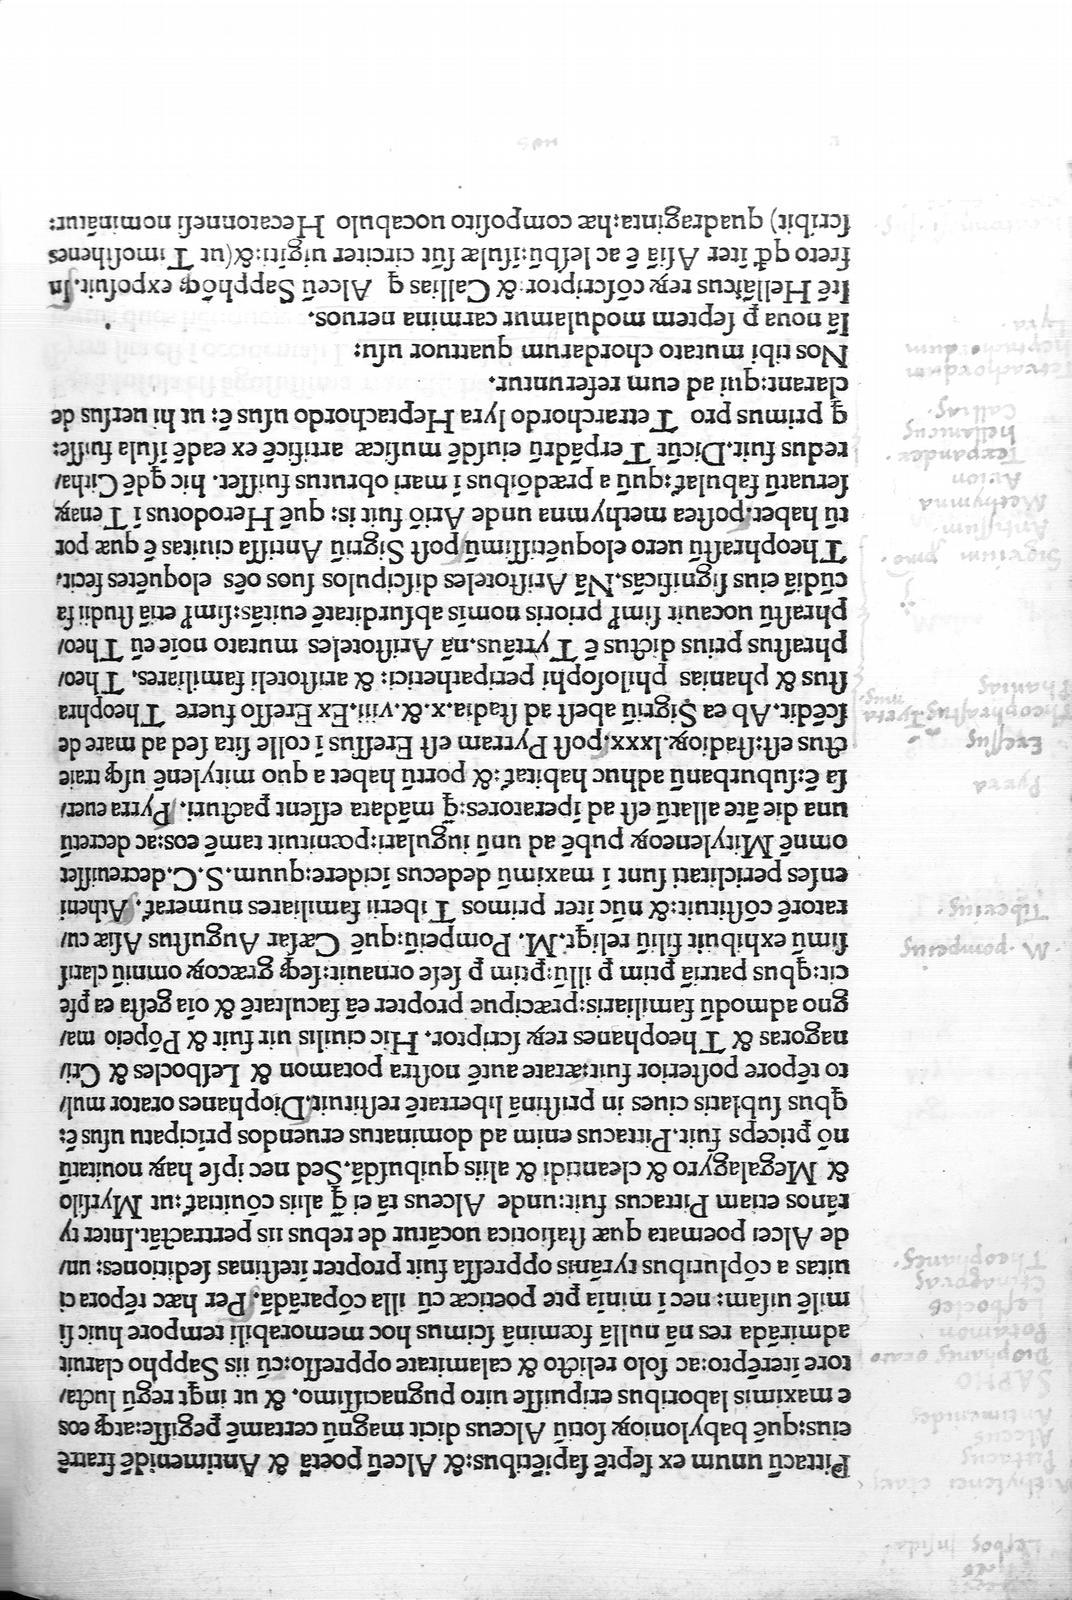 Pittacū unum ex septē sapiētibus:& Alceū poetā & Antimenidē fratrē
eius:quē babylonioꝝ sonū Alceus dicit magnū certamē ꝑegisse:atqꝫ eos
e maximis laboribus eripuisse uiro pugnacissimo. & ut inqt regū lucta/
tore iterēpto:ac solo relicto & calamitate oppresso:cū iis Sappho claruit
admirāda res nā nullā fœminā scimus hoc memorabili tempore huic si
milē uisam: nec ī minia pre poeticæ cū illa cōparādā. Per hæc tēpora ci
uitas a cōpluribus tyrānis oppressa fuit propter itestinas seditiones: un/
de Alcei poemata quæ stasiotica uocātur de rebus iis pertractāt.Inter ty
rānos etiam Pittacus fuit:unde Alceus tā ei q̄ aliis cōuitiat᷑:ut Myrsilo
& Megalagyro & cleantidi & aliis quibusdā.Sed nec ipse haꝝ nouitatū
nō pꝛiceps fuit.Pittacus enim ad dominatus eruendos pricipatu usus ē:
qbus sublatis ciues in pristinā libertatē restituit.Diophanes orator mul/
to tēpore posterior fuit:ætate autē nostra potamon & Lesbocles & Cri/
nagoras & Theophanes reꝝ scriptor. Hic ciuilis uir fuit & Pōpeio ma/
gno admodū familiaris:præcipue propter eā facultatē & oīa gesta ea pfe
cit:qbus patriā ptim p illū:ptim p sese ornauit:seqꝫ græcoꝝ omniū clarif
simū exhibuit filiū reliqt.M. Pompeiū:quē Cæsar Augustus Asiæ cu/
ratorē cōstituit:& nūc iter primos Tiberii familiares numerat᷑. Atheni
enses periclitati sunt ī maximū dedecus icidere:quum.S.C.decreuisset
omnē Mityleneoꝝ pubē ad unū iugulari:pœnituit tamē eos:ac decretū
una die āte allatū est ad iperatores:q̄ mādata essent pacturi. Pyrra euer/
sa ē:suburbanū adhuc habitat᷑:& portū habet a quo mitylenē usqꝫ traie
ctus est:stadioꝝ.lxxx:post Pyrram est Eressus ī colle sita sed ad mare de
scēdit.Ab ea Sigriū abest ad stadia.x.&.viii.Ex Eresso fuere Theophra
stus & phanias philosophi peripathetici: & aristoteli familiares. Theo/
phrastus prius dictus ē Tyrtāus.nā Aristoteles mutato noīe eū Theo/
phrastū uocauit siml prioris nomis absurditatē euitās:siml etiā studii fa
cūdiā eius significās.Nā Aristoteles discipulos suos oēs eloquētes fecit.
Theophrastū uero eloquētissimū post Sigriū Antissa ciuitas ē quæ por
tū habet.postea methymna unde Ariō fuit is: quē Herodotus ī Tenaꝝ
seruatū fabulat᷑:quū a prædōibus ī mari obrutus fuisset. hic qdē Citha/
redus fuit.Dicūt Terpādrū eiusdē musicæ artificē ex eadē isula fuisse:
q primus pro Tetrarchordo lyra Heptachordo usus ē: ut hi uersus de
clarant:qui ad eum referuntur.
Nos tibi mutato chordarum quattuor usu:
Iā noua p septem modulamur carmina neruos.
Itē Hellāicus reꝝ cōscriptor:& Callias q Alceū Sapphōqꝫ exposuit.In
freto qd iter Asiā ē ac lesbū:isulæ sūt circiter uigiti:&(ut Timosthenes
scribit) quadraginta:hæ composito uocabulo Hecatonnesi nominātur: